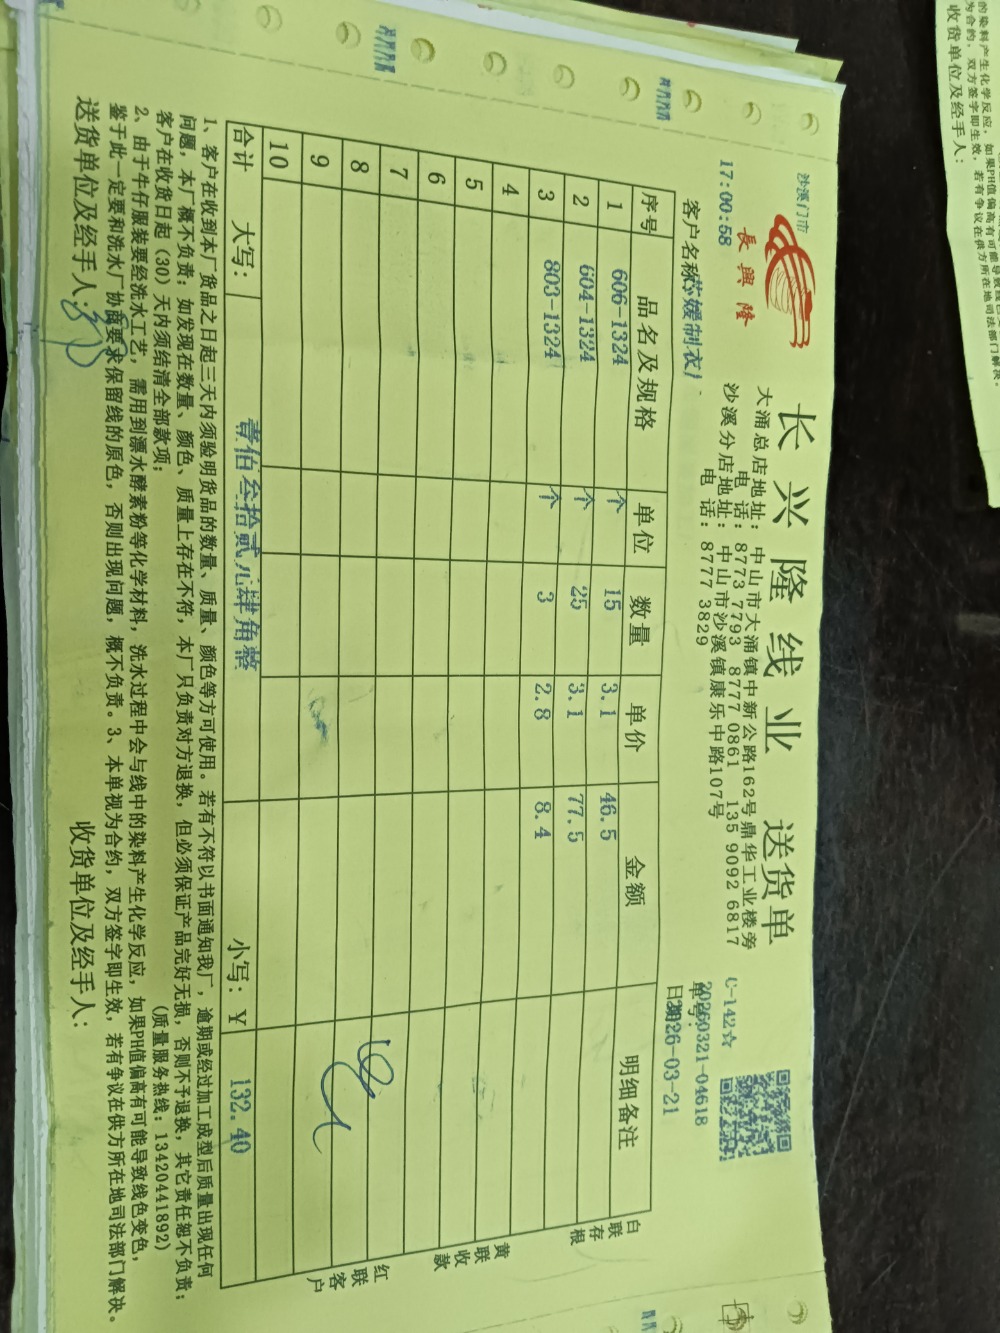 沙溪门市
長興隆
长兴隆线业 送货单
大涌总店地址：中山市大涌镇中新公路162号鼎华工业楼旁
电 话：8773 7793 8777 0861 135 9092 6817
沙溪分店地址：中山市沙溪镇康乐中路107号
电 话：8777 3829
17:00:58
C-142☆
单号：20260321-04618
日期：2026-03-21
客户名称 媛制衣厂
序号 品名及规格 单位 数量 单价 金额 明细备注
1 606-1324 个 15 3.1 46.5
2 604-1324 个 25 3.1 77.5
3 803-1324 个 3 2.8 8.4
4
5
6
7
8
9
10
合计 大写： 壹佰叁拾贰元肆角整 小写：￥ 132.40
白联存根
黄联收款
红联客户
1、客户在收到本厂货品之日起三天内须验明货品的数量、质量、颜色等方可使用。若有不符以书面通知我厂，逾期或经过加工成型后质量出现任何
问题，本厂概不负责；如发现在数量、颜色、质量上存在不符，本厂只负责对方退换，但必须保证产品完好无损，否则不予退换，其它责任恕不负责；
客户在收货日起（30）天内须结清全部款项； （质量服务热线：13420441892）
2、由于牛仔服装要经洗水工艺，需用到漂水酵素粉等化学材料，洗水过程中会与线中的染料产生化学反应，如果PH值偏高有可能导致线色变色，
鉴于此一定要和洗水厂协商要求保留线的原色，否则出现问题，概不负责。3、本单视为合约，双方签字即生效，若有争议在供方所在地司法部门解决。
送货单位及经手人： 收货单位及经手人：
的染料产生化学反应，如果PH值偏高有可能导致线色
为合约，双方签字即生效，若有争议在供方所在地司法部门解决.
收货单位及经手人：